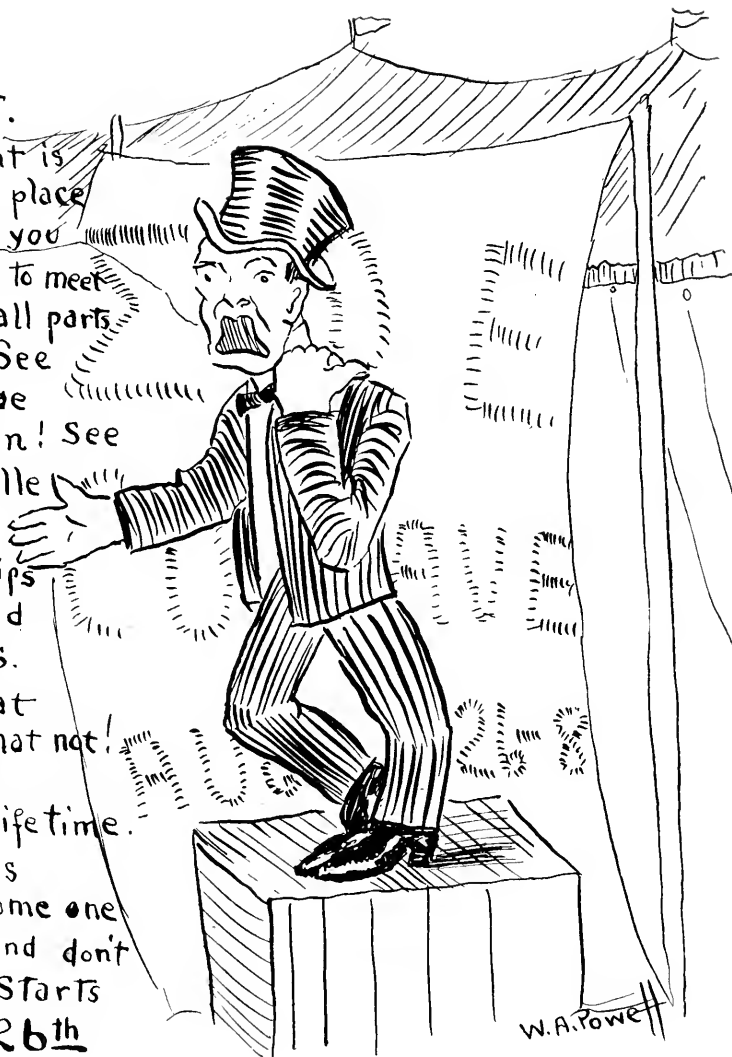 T.
at is
place
you
to meet
all parts
See
n! See
lle
ips
d
s.
at
hat not!
ifetime.
s
ome one
nd don't
Starts
26th
E
CO AVE
AUG 26-8
W.A.Powell